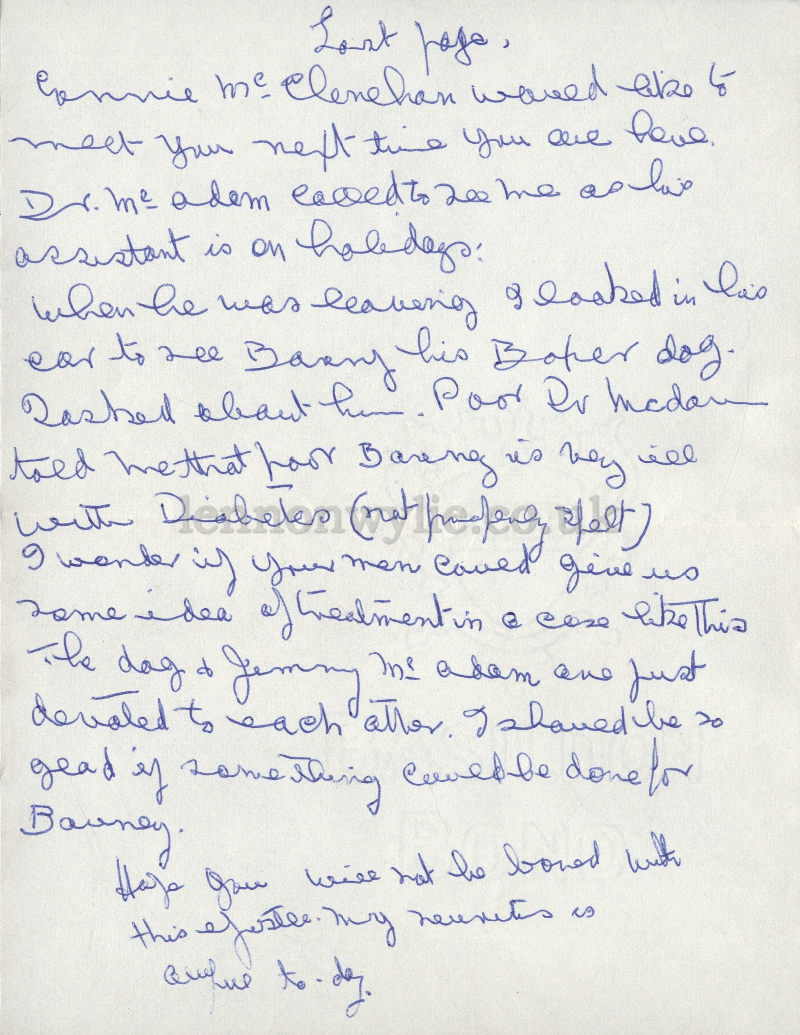 Last page.
Connie Mc Clenehan would like to
meet you next time you are here.
Dr. Mc Adam called to see me as his
assistant is on holidays:
When he was leaving I looked in his
car to see Barny his Boxer dog.
I asked about him. Poor Dr Mcdam
told me that poor Barney is very ill
with Diabetes (not properly spelt)
lennonwylie.co.uk
I wonder if your man could give us
some idea of treatment in a case like this
The dog & Jemmy Mc Adam are just
devoted to each other. I should be so
glad if something could be done for
Barney.
Hope you will not be bored with
this epistle. My neuritis is
awful to-day.